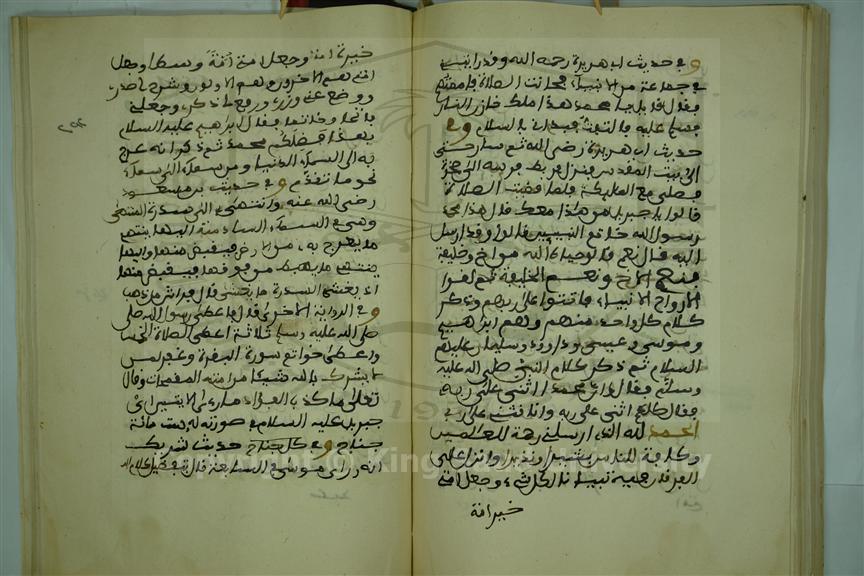 وفي حديث ابي هريرة رحمه الله وقد رايتني
في جماعة من الانبياء فحانت الصلاة فاممتهم
فقال قايل يا محمد هذا ملك خازن النار
فسلم عليه فالتفت فبداني بالسلام وفي
حديث ابي هريرة رضي الله ثم سار حتى
اتى بيت المقدس فنزل فربط فرسه الى صخرة
فصلى مع الملايكة فلما قضيت الصلاة
قالوا يا جبريل من هذا معك قال هذا محمد
رسول الله خاتم النبيين قالوا وقد ارسل
اليه قال نعم قالوا حياه الله من اخ وخليفة
فنعم الاخ ونعم الخليفة ثم لقوا
ارواح الانبياء فاثنوا على ربهم وذكر
كلام كل واحد منهم وهم ابراهيم
وموسى وعيسى وداوود وسليمان عليهم
السلام ثم ذكر كلام النبي صلى الله عليه
وسلم فقال وان محمدا اثنى على ربه
فقال كلكم اثنى على ربه وانا مثن على ربي
الحمد لله الذي ارسلني رحمة للعالمين
وكافة للناس بشيرا ونذيرا وانزل علي
الفرقان فيه تبيان كل شيء وجعل امتي
خير امة
خير امة وجعل امتي امة وسطا وجعل
امتي هم الاخرون وهم الاولون وشرح لي صدري
ووضع عني وزري ورفع لي ذكري وجعلني
فاتحا وخاتما فقال ابراهيم عليه السلام
بهذا فضلكم محمد ثم ذكر انه عرج
به الى السماء الدنيا ومن سماء الى سماء
نحو ما تقدم وفي حديث بن مسعود
رضي الله عنه وانتهي بي الى سدرة المنتهى
وهي في السماء السادسة اليها ينتهي
ما يعرج به من الارض فيقبض منها واليها
ينتهي ما يهبط من فوقها فيقبض منها
اذ يغشى السدرة ما يغشى قال فراش من ذهب
وفي الرواية الاخرى قال فاعطي رسول الله صلى
صلى الله عليه وسلم ثلاثة اعطي الصلاة الخمس
واعطي خواتم سورة البقرة وغفر لمن
لا يشرك بالله شيئا من امته المقحمات وقال
تعالى ما كذب الفؤاد ما راى الايتين راى
جبريل عليه السلام في صورته له ست مائة
جناح وفي كل جناح حديث شريك
انه راى موسى في السابعة قال بتفضيل كلام الله